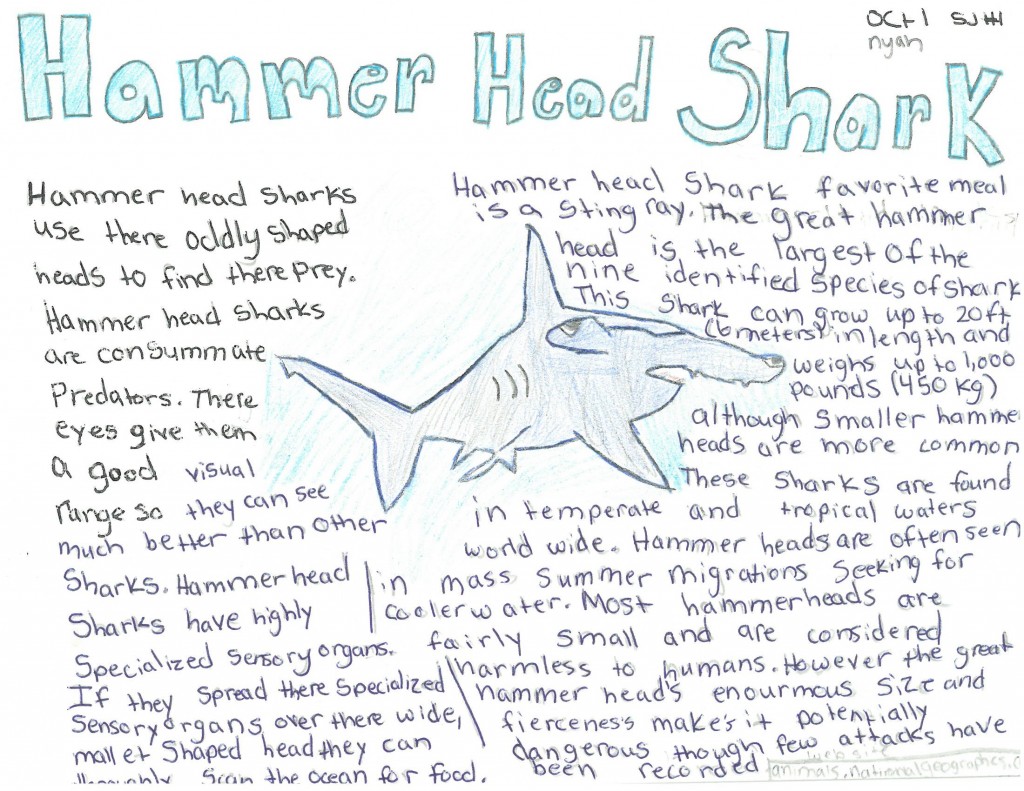 Hammer Head Shark
Oct 1
nyah
Hammer head Sharks
use there oddly shaped
heads to find there prey.
Hammer head sharks
are consummate
Predators. There
eyes give them
a good visual
range so they can see
much better than other
Sharks. Hammerhead
Sharks have highly
Specialized sensory organs.
If they spread there specialized
Sensory organs over there wide,
mallet Shaped head they can
Scan the ocean for food.
Hammer head Shark favorite meal
is a Sting ray. The great hammer
head is the largest of the
nine identified species of shark
This Shark can grow up to 20ft
(6 meters) in length and
weighs up to 1,000
pounds (450 kg)
although smaller hamme
heads are more common
These Sharks are found
in temperate and tropical waters
world wide. Hammer heads are often seen
in mass summer migrations seeking for
cooler water. Most hammerheads are
fairly small and are considered
harmless to humans. However the great
hammer head's enourmous size and
fierceness make's it potentially
dangerous though few attacks have
been recorded
web site
animals.nationalgeographics.c